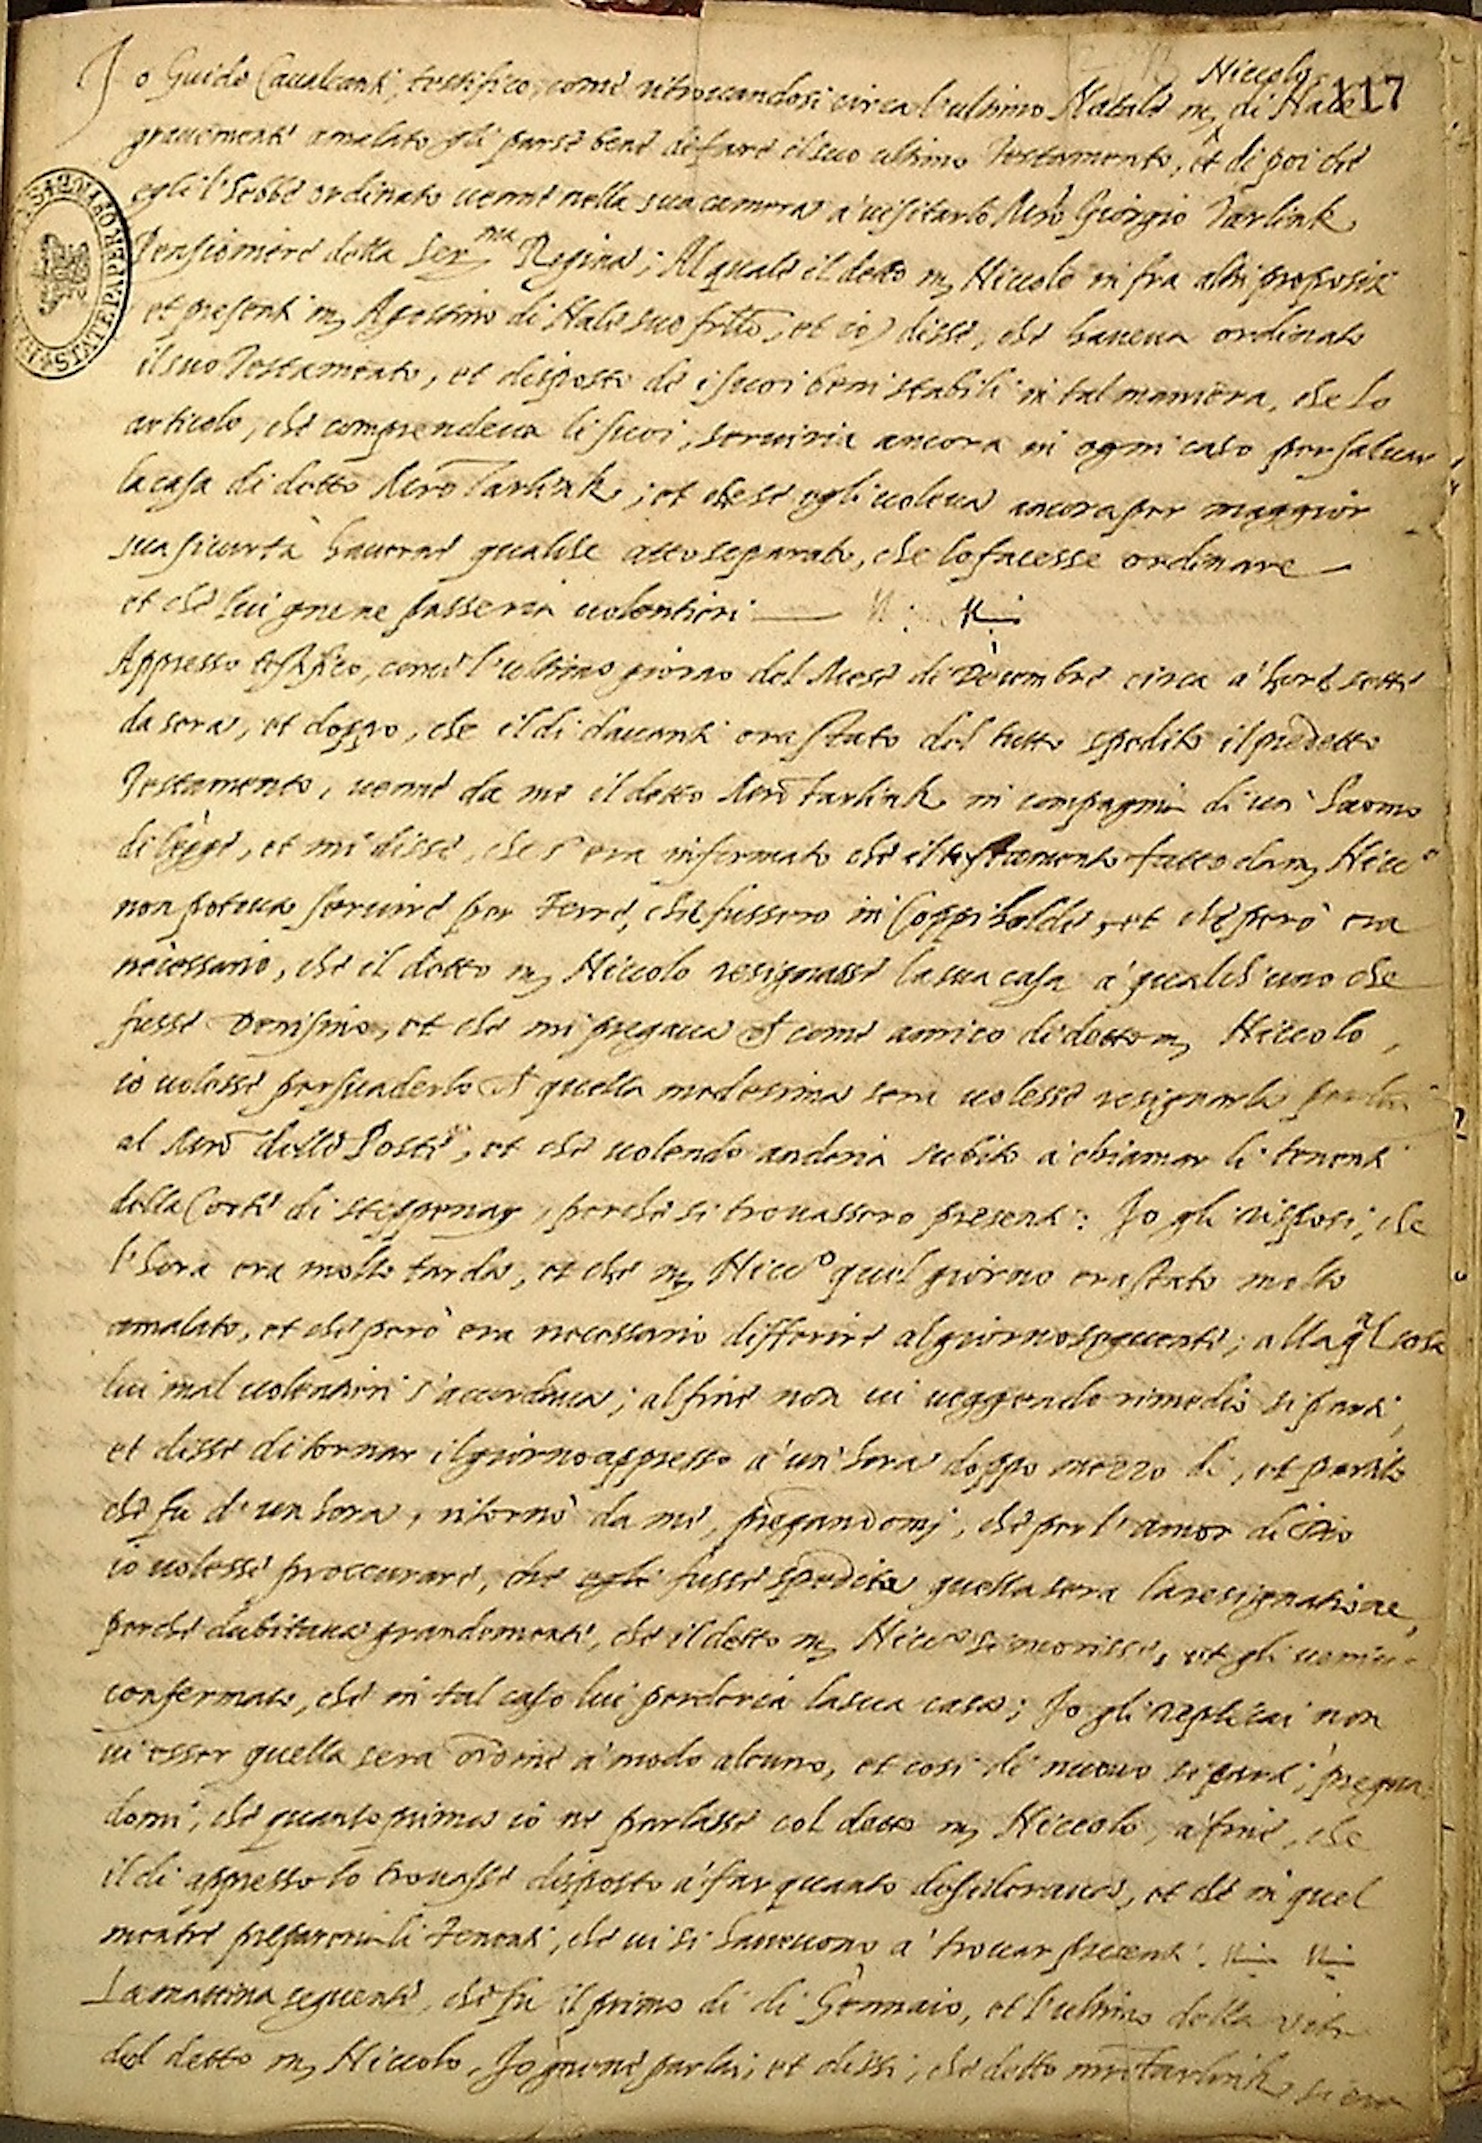 Niccolo 117
Io Guido Cavalcanti, testifico, come ritrovandosi circa l'ultimo Natale m, di Hale
gravemente amalato gli parse bene di fare il suo ultimo Testamento, et di poi che
egli l'hebbe ordinato venne nella sua camera a' visitarlo Mro Giorgio Tarlink
Pensionere della Ser.ma Regina; Al quale il detto m, Niccolo in fra altri propositi
et presenti m, Agostino di Hale suo frllo, et io) disse, che haveva ordinato
il suo Testamento, et disposto de i suoi beni stabili in tal maniera, che lo
articolo, che comprendeva li suoi, serviria ancora in ogni caso per salvar
la casa di detto Mro Tarlink; et che se egli voleva ancora per maggior
sua sicurta haverne qualche atto separato, che lo facesse ordinare
et che lui gnene passeria volontieri
Appresso testifico, come l'ultimo giorno del Mese di Decembre circa a' hore sette
da sera, et doppo, che il di davanti era stato del tutto spedito il predetto
Testamento, venne da me il detto Mro Tarlink in compagnia di un' huomo
di legge, et mi disse, che s'era informato che il testamento fatto da m, Nicc.o
non poteva servire per Terre, che fussero in Coppiholde, et che pero era
necessario, che il detto m, Niccolo resignasse la sua casa a' qualch'uno che
fusse Denisino, et che mi pregava che come amico di detto m, Niccolo,
io volesse persuaderlo che quella medesima sera volesse resignarla
al Mro delle Poste, et che volendo anderia subito a' chiamar li tenenti
della Corte di Steppenay, perche si trovassero presenti: Io gli risposi, che
l'hora era molto tarda, et che m, Nicc.o quel giorno era stato molto
amalato, et che pero era necessario differire al giorno seguente; alla ql cosa
lui mal volentieri s'accordava; al fine non vi veggendo rimedio si parti,
et disse di tornar il giorno appresso a' un' hora doppo mezzo di, et partito
che fu d'un hora, ritorno da me, pregandomi, che per l'amor di Dio
io volesse proccurare, che egli fusse spedita quella sera la resignatione,
perche dubitava grandemente, che il detto m, Nicc.o si morisse, et gli veniva
confermato, che in tal caso lui perderia la sua casa; Io gli replicai non
vi esser quella sera ordine a' modo alcuno, et cosi di nuovo si parti, pregan-
domi, che quanto prima io ne parlasse col detto m, Niccolo, a' fine, che
il di appresso lo trovasse disposto a' far quanto desiderava, et che in quel
mentre prepareria li Tenenti, che vi si havevono a' trovar presenti.
La mattina seguente, che fu il primo di di Gennaio, et l'ultimo della vita
del detto m, Niccolo, Io gnene parlai; et dissi, che detto mro Tarlink si era